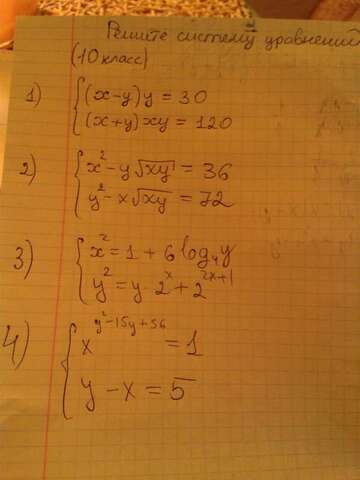 Решите систему уравнений
(10 класс)
1) { (x-y)y = 30
(x+y)xy = 120
2) { x² - y√xy = 36
y² - x√xy = 72
3) { x² = 1 + 6log₄y
y² = y·2ˣ + 2²ˣ⁺¹
4) { x^(y²-15y+56) = 1
y - x = 5